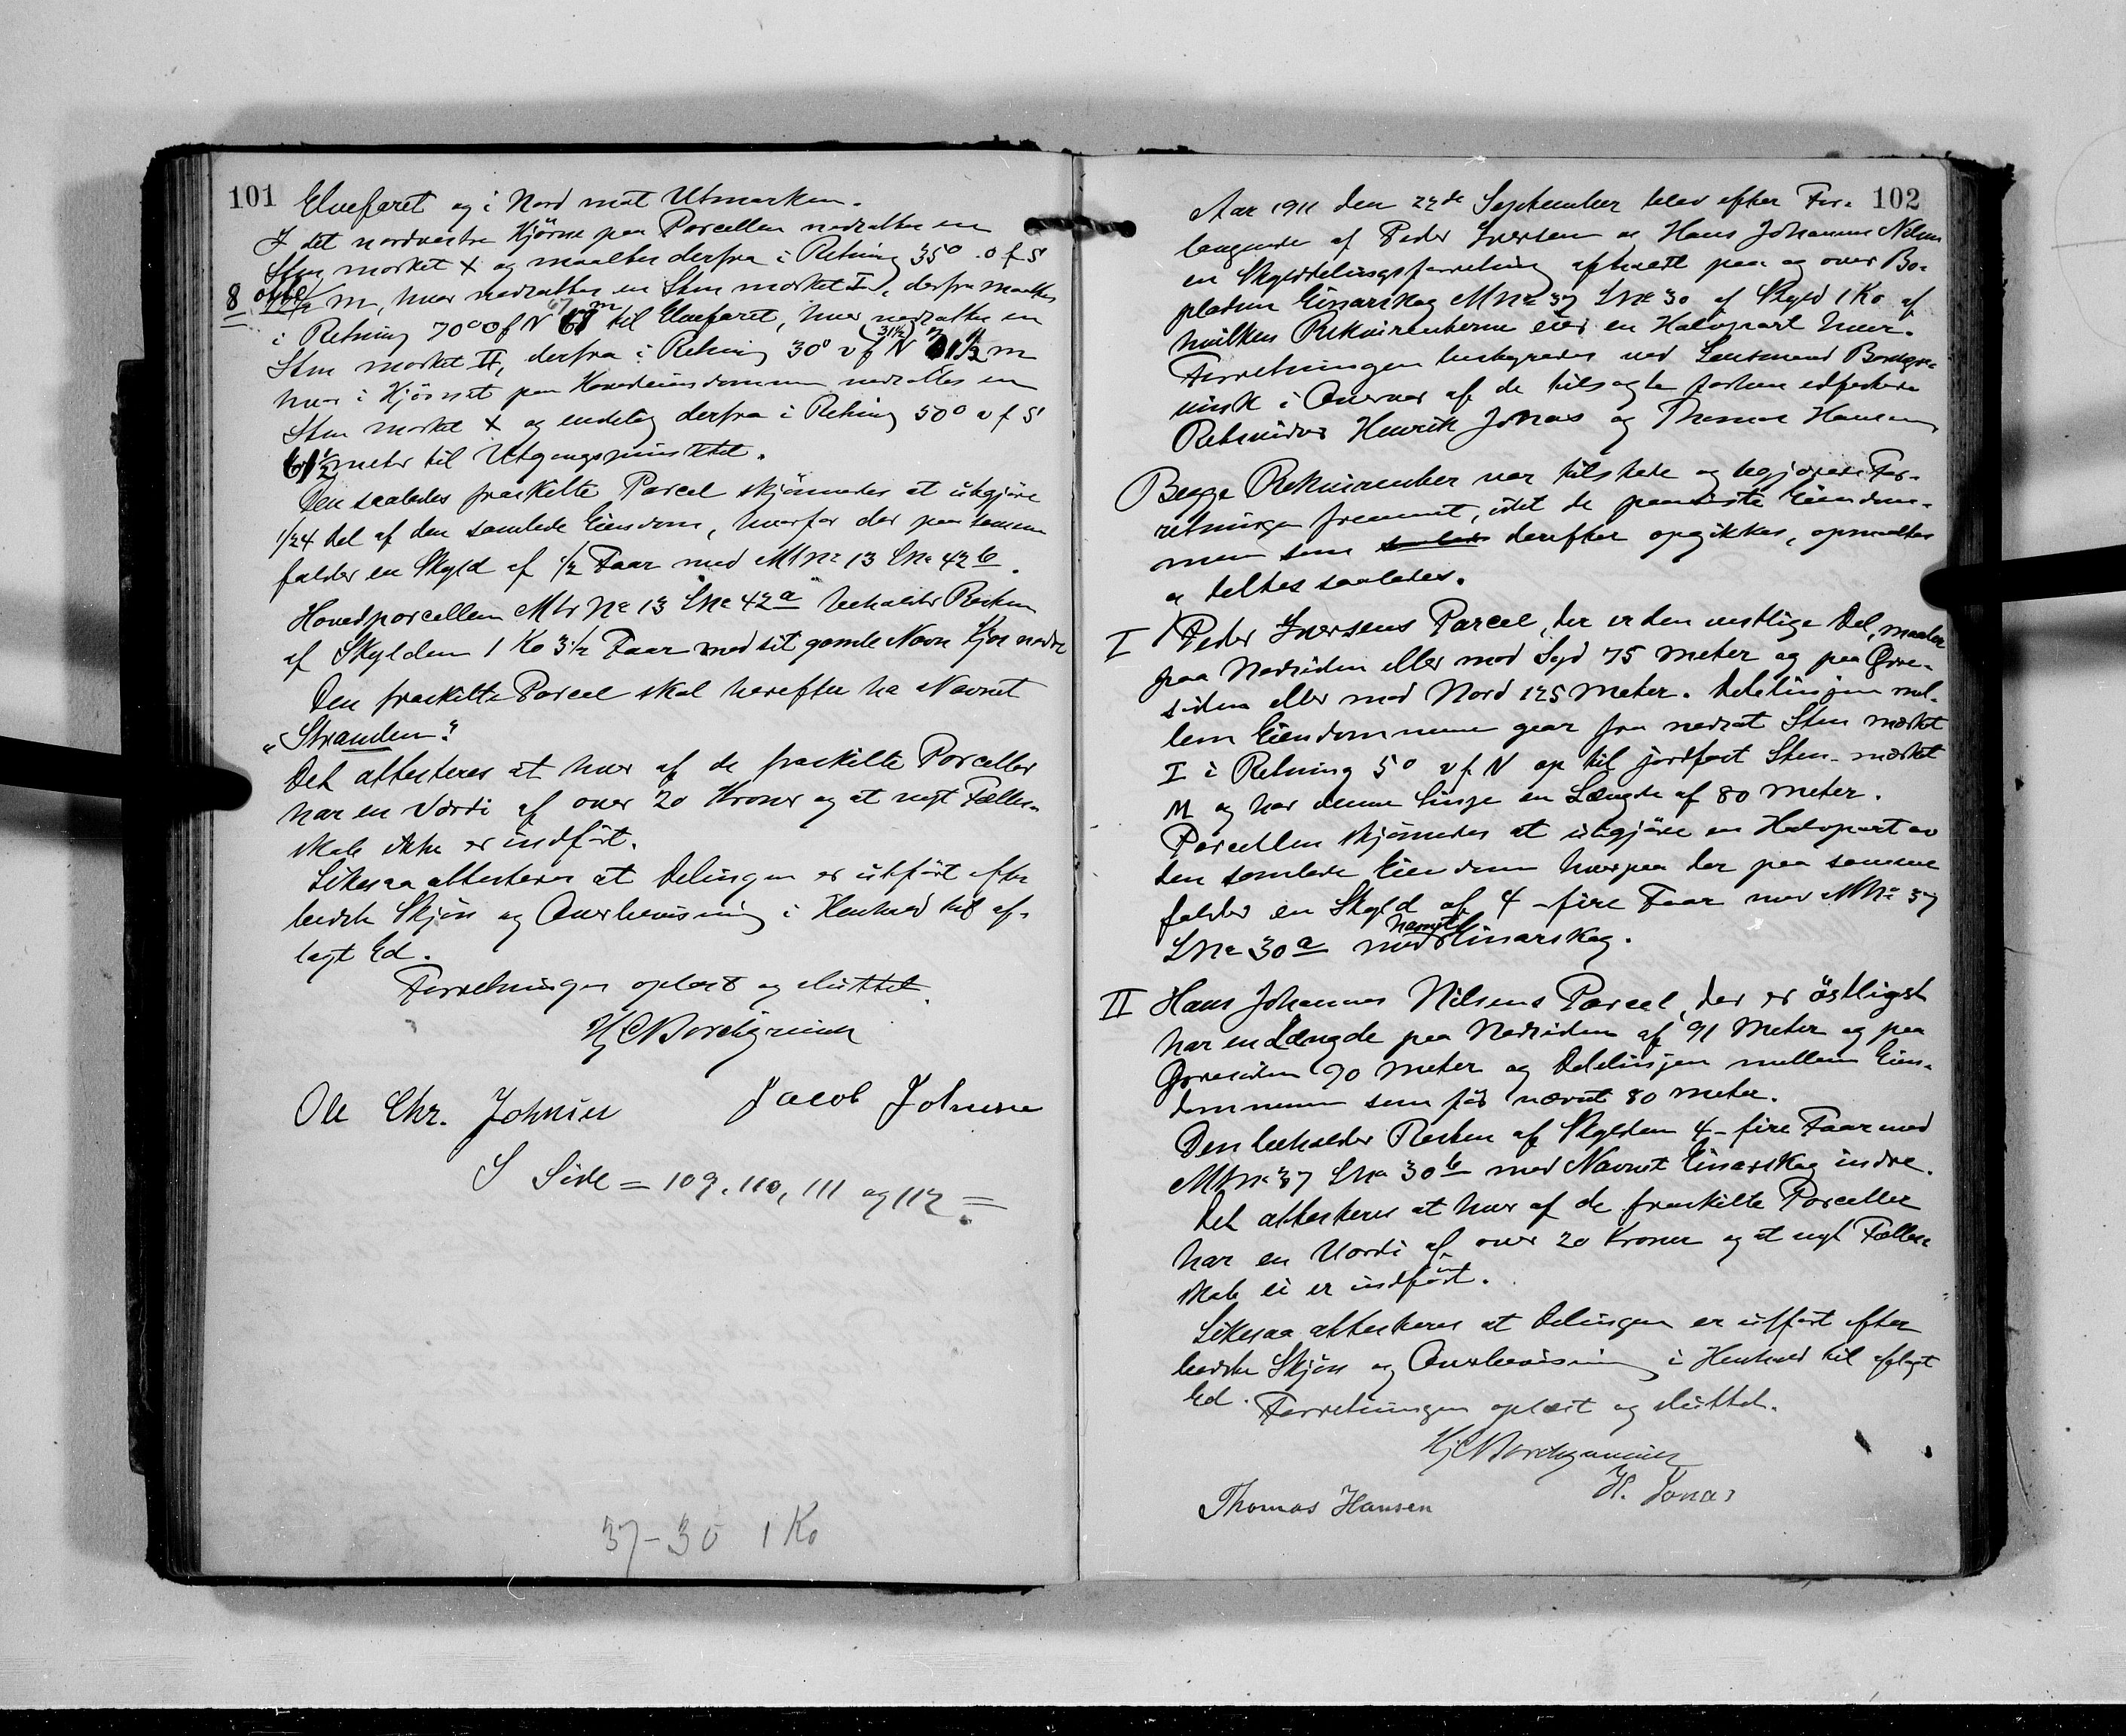 101
Elvefaret og i Nord mot Utmarken.
I det nordvestre Hjørne paa Parcellen nedsattes en
Sten merket X og maaltes derfra i Retning 35° o f S
8 m, hvor nedsattes en Sten merket I, derfra maaltes
i Retning 70° o f N 67 m til Elvefaret, hvor nedsattes en
Sten merket II, derfra i Retning 30° v f N (31½) 31½ m
hvor i Hjørnet paa Hovedeiendommen nedsattes en
Sten merket X og endelig derfra i Retning 50° v f S
61½ meter til Utgangspunktet.
Den saaledes fraskilte Parcel skjønnedes at utgjøre
1/24 del af den samlede Eiendom, hvorfor der paa samme
falder en Skyld af ½ Faar med MNr 13 LNr 42 b.
Hovedparcellen Mtr Nr 13 LNr 42a beholder Resten
af Skylden 1 Ko 3½ Faar med sit gamle Navn Kjos nedre
Den fraskilte Parcel skal herefter ha Navnet
"Stranden".
Det attesteres at hver af de fraskilte Parceller
har en Værdi af over 20 Kroner og at nyt Fælles-
skab ikke er indført.
Likesaa attesteres at Delingen er utført efter
bedste Skjøn og Overbevisning i Henhold til af-
lagt Ed.
Forretningen oplæst og sluttet.
Hj C Borchgrevink
Ole Chr. Johnsen Jacob Johnsen
S Side = 109, 110, 111 og 112 =
37-30 1 Ko
102
Aar 1911 den 22de September blev efter For-
langende af Peder Iversen og Hans Johannes Nilsen
en Skylddelingsforretning afholdt paa og over Bo-
pladsen Einarskog MNr 37 LNr 30 af Skyld 1 Ko af
hvilken Rekvirenterne eier en Halvpart hver.
Forretningen bestyredes ved Lensmand Borchgre-
vink i Overvær af de tilsagte fasten edfæstede
Retsvidner Henrik Jonas og Thomas Hansen
Begge Rekvirenter var tilstede og begjærede For-
retningen fremmet, idet de paaviste Eiendom-
men som derefter opgikkes, opmaaltes
og deltes saaledes.
I Peder Iversens Parcel, der er den vestlige Del, maaler
paa Nedsiden eller mod Syd 75 meter og paa Øvre-
siden eller mod Nord 125 Meter. Delelinjen mel-
lem Eiendommene gaar fra nedsat Sten mærket
I i Retning 5° v f N op til jordfast Sten mærket
M og har denne Linje en Længde af 80 meter.
Parcellen skjønnedes at utgjøre en Halvpart av
den samlede Eiendom hvorpaa der paa samme
falder en Skyld af 4 - fire Faar med MNr 37
LNr 30 a med navnet Einarskog.
II Hans Johannes Nilsens Parcel, der er østligst
har en Længde paa Nedsiden af 91 Meter og paa
Øvresiden 90 meter og Delelinjen mellem Eien-
dommene som før nævnt 80 meter.
Den beholder Resten af Skylden 4 - fire Faar med
MNr 37 LNr 30 b med Navnet Einarskog indre.
Det attesteres at hver af de fraskilte Parceller
har en Værdi af over 20 Kroner og at nyt Fælles-
skab ei er indført.
Likesaa attesteres at Delingen er utført efter
bedste Skjøn og Overbevisning i Henhold til aflagt
Ed. Forretningen oplæst og sluttet.
Hj C Borchgrevink
Thomas Hansen H. Jonas